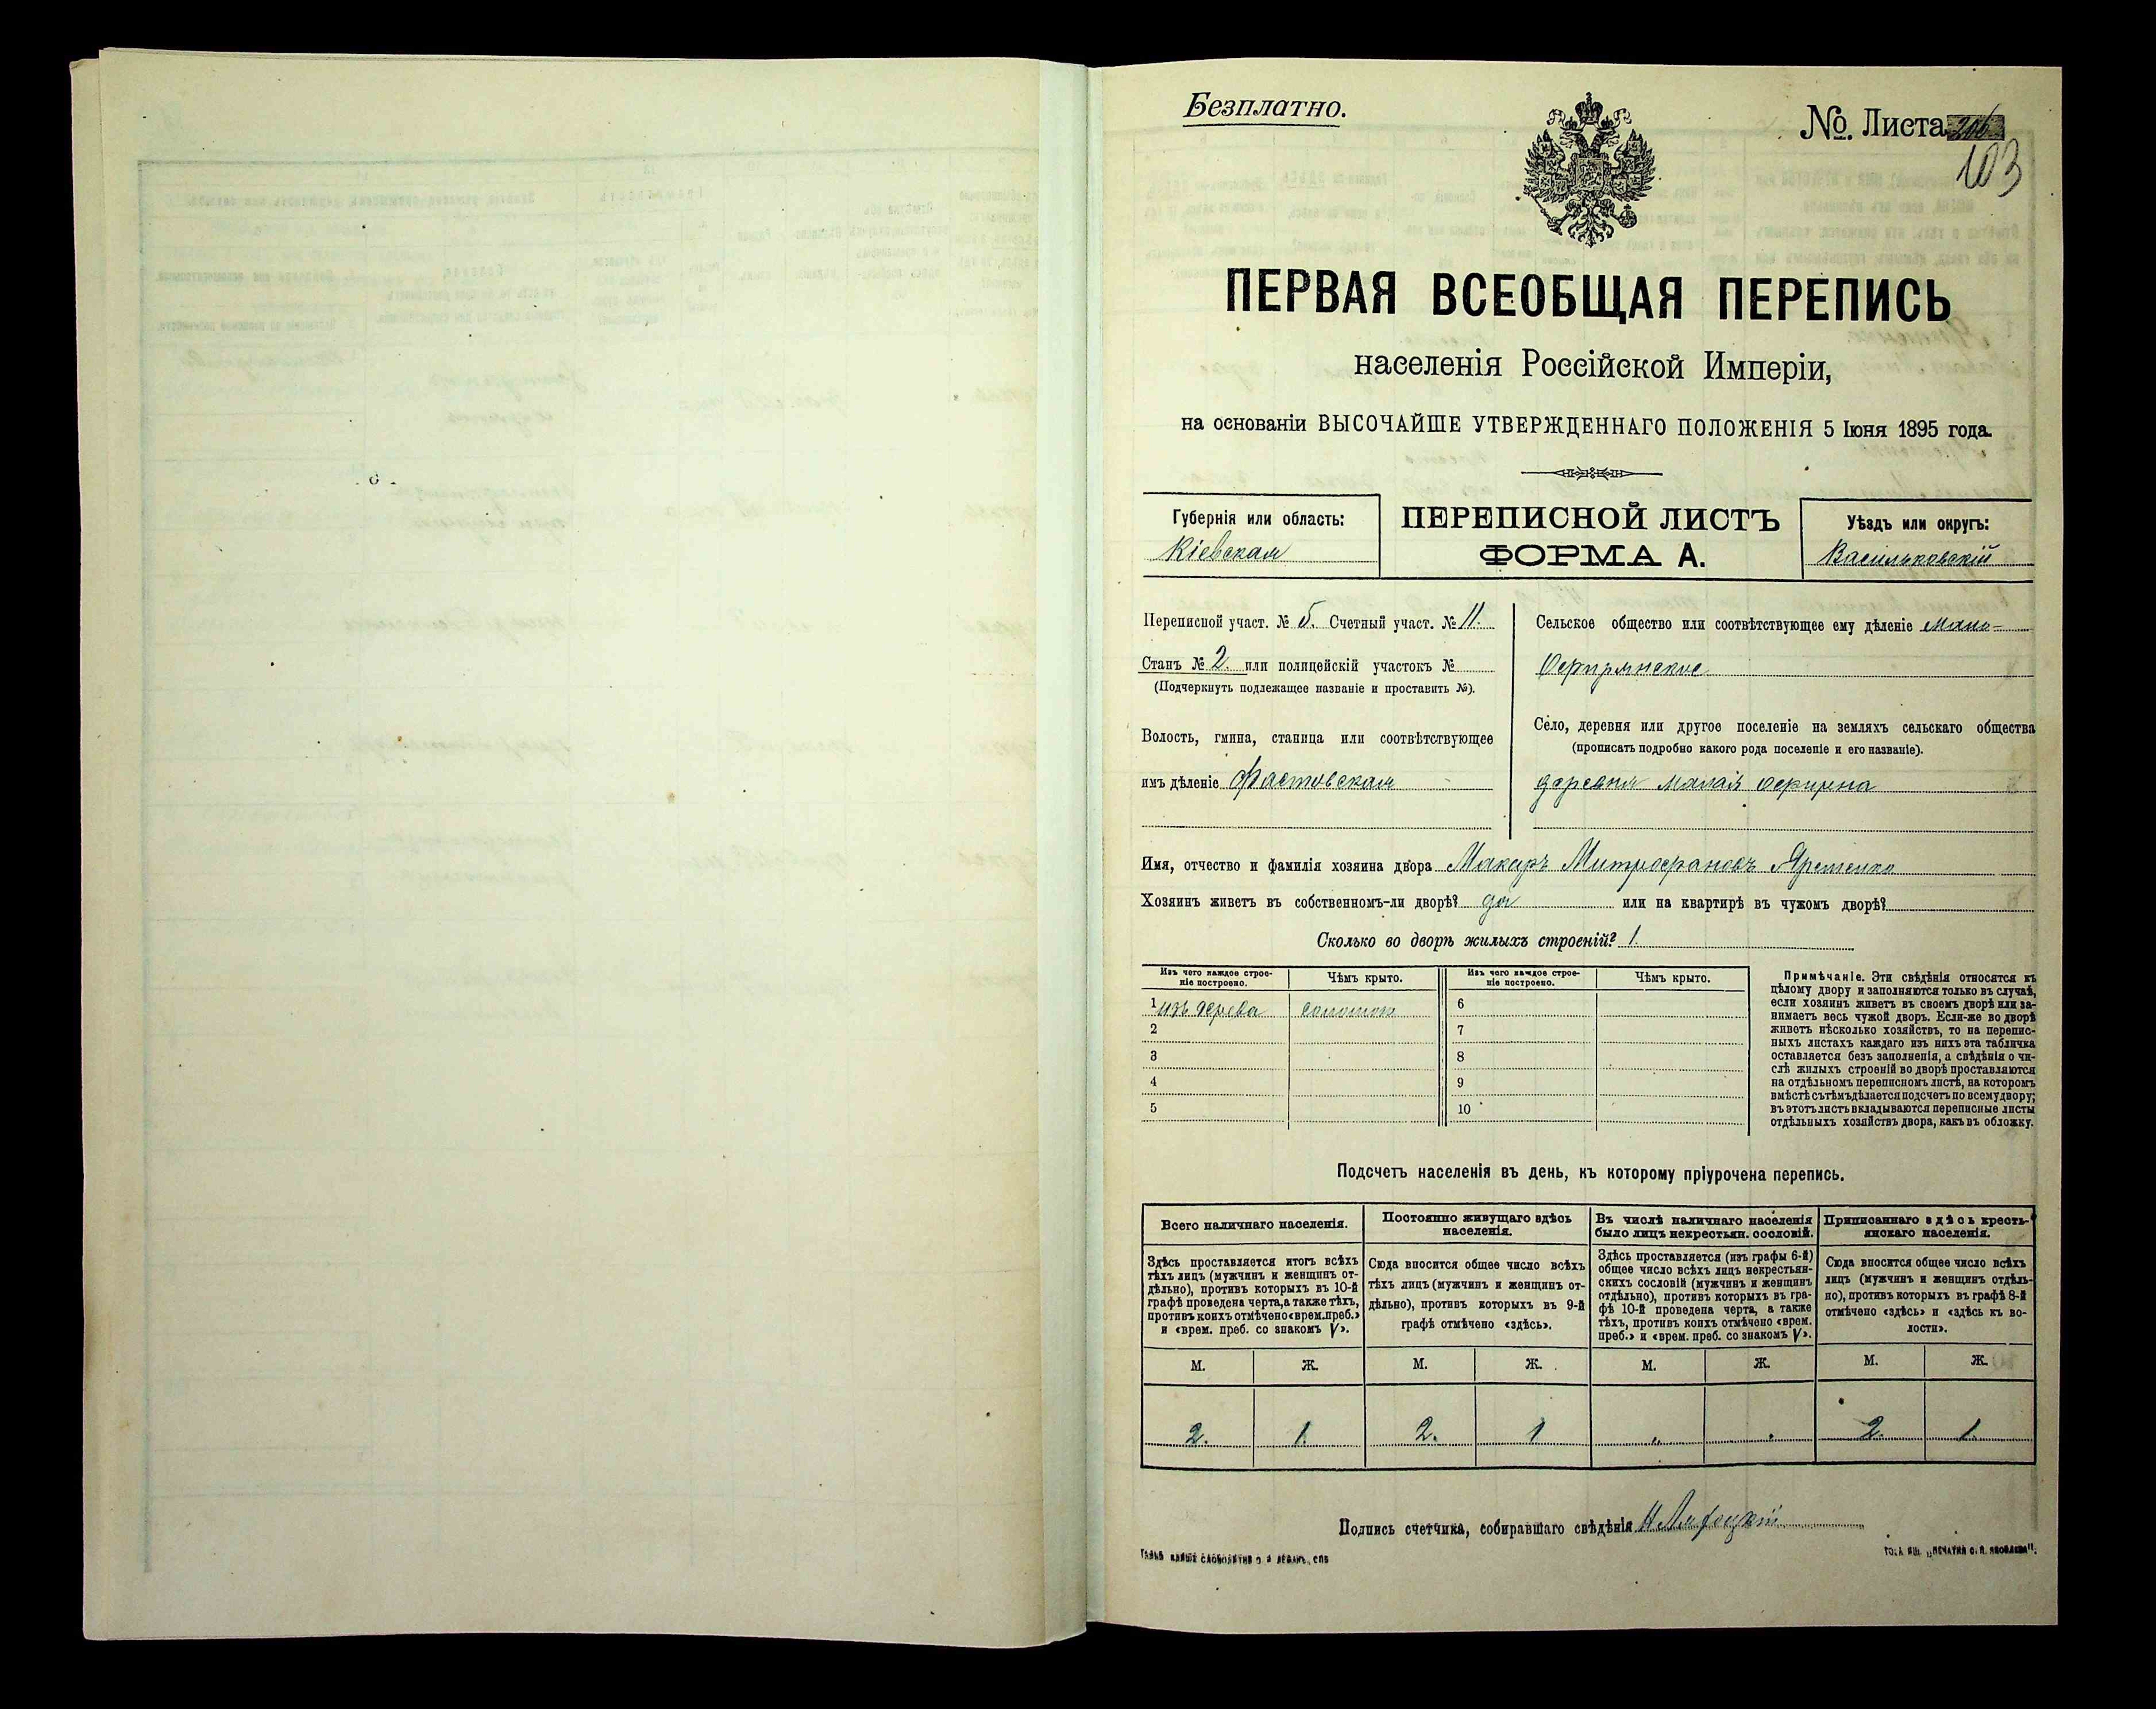 Безплатно.
№ Листа
103
ПЕРВАЯ ВСЕОБЩАЯ ПЕРЕПИСЬ
населенія Россійской Имперіи,
на основаніи ВЫСОЧАЙШЕ УТВЕРЖДЕННАГО ПОЛОЖЕНІЯ 5 Іюня 1895 года.
Губернія или область:
Кіевская
ПЕРЕПИСНОЙ ЛИСТЪ
ФОРМА А.
Уѣздъ или округъ:
Васильковскій
Переписной участ. № 5. Счетный участ. № 11.
Станъ № 2. или полицейскій участокъ №
(Подчеркнуть подлежащее названіе и проставить №).
Волость, гмина, станица или соотвѣтствующее
имъ дѣленіе Фастовская
Сельское общество или соотвѣтствующее ему дѣленіе Мало-
Село, деревня или другое поселеніе на земляхъ сельскаго общества
(прописать подробно какого рода поселеніе и его названіе).
деревня Малая
Имя, отчество и фамилія хозяина двора Макаръ Митрофановъ Яременко
Хозяинъ живетъ въ собственномъ-ли дворѣ? да или на квартирѣ въ чужомъ дворѣ?
Сколько во дворѣ жилыхъ строеній? 1.
Изъ чего каждое строе-
ніе построено.
Чѣмъ крыто.
Изъ чего каждое строе-
ніе построено.
Чѣмъ крыто.
1 изъ дерева соломою
2
3
4
5
6
7
8
9
10
Примѣчаніе. Эти свѣдѣнія относятся къ
цѣлому двору и заполняются только въ случаѣ,
если хозяинъ живетъ въ своемъ дворѣ или за-
нимаетъ весь чужой дворъ. Если-же во дворѣ
живетъ нѣсколько хозяйствъ, то на перепис-
ныхъ листахъ каждаго изъ нихъ эта табличка
оставляется безъ заполненія, а свѣдѣнія о чи-
слѣ жилыхъ строеній во дворѣ проставляются
на отдѣльномъ переписномъ листѣ, на которомъ
вмѣстѣ съ тѣмъ дѣлается подсчетъ по всему двору;
въ этотъ листъ вкладываются переписные листы
отдѣльныхъ хозяйствъ двора, какъ въ обложку.
Подсчетъ населенія въ день, къ которому пріурочена перепись.
Всего наличнаго населенія.
Здѣсь проставляется итогъ всѣхъ
тѣхъ лицъ (мужчинъ и женщинъ от-
дѣльно), противъ которыхъ въ 10-й
графѣ проведена черта, а также тѣхъ,
противъ коихъ отмѣчено «врем. преб.»
и «врем. преб. со знакомъ V».
Постоянно живущаго здѣсь
населенія.
Сюда вносится общее число всѣхъ
тѣхъ лицъ (мужчинъ и женщинъ от-
дѣльно), противъ которыхъ въ 9-й
графѣ отмѣчено «здѣсь».
Въ числѣ наличнаго населенія
было лицъ некрестьян. сословій.
Здѣсь проставляется (изъ графы 6-й)
общее число всѣхъ лицъ некрестьян-
скихъ сословій (мужчинъ и женщинъ
отдѣльно), противъ которыхъ въ гра-
фѣ 10-й проведена черта, а также
тѣхъ, противъ коихъ отмѣчено «врем.
преб.» и «врем. преб. со знакомъ V».
Приписаннаго здѣсь кресть-
янскаго населенія.
Сюда вносится общее число всѣхъ
лицъ (мужчинъ и женщинъ отдѣль-
но), противъ которыхъ въ графѣ 8-й
отмѣчено «здѣсь» и «здѣсь къ во-
лости».
М. Ж. М. Ж. М. Ж. М. Ж.
2. 1. 2. 1 2. 1.
Подпись счетчика, собиравшаго свѣдѣнія